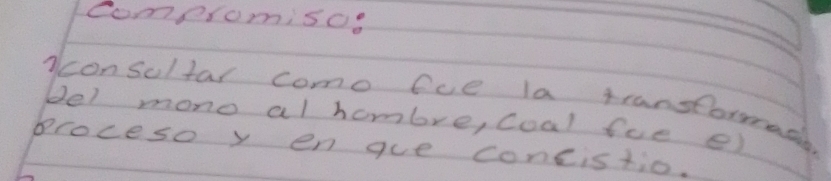 compromiso:
1 consultar como fue la transformac.
Del mono al hombre, Coal fue el
proceso y en que concistio.